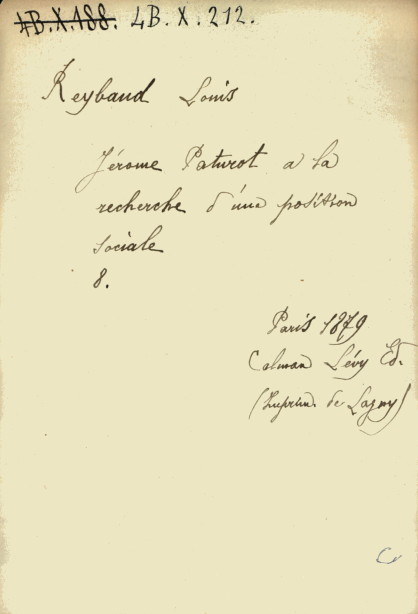 4B.X.188. 4B.X.212.
Reybaud Louis
Jérome Paturot a la
recherche d'une position
sociale
8.
Paris 1879
Calman Lévy Ed.
(Imprim. de Lagny)